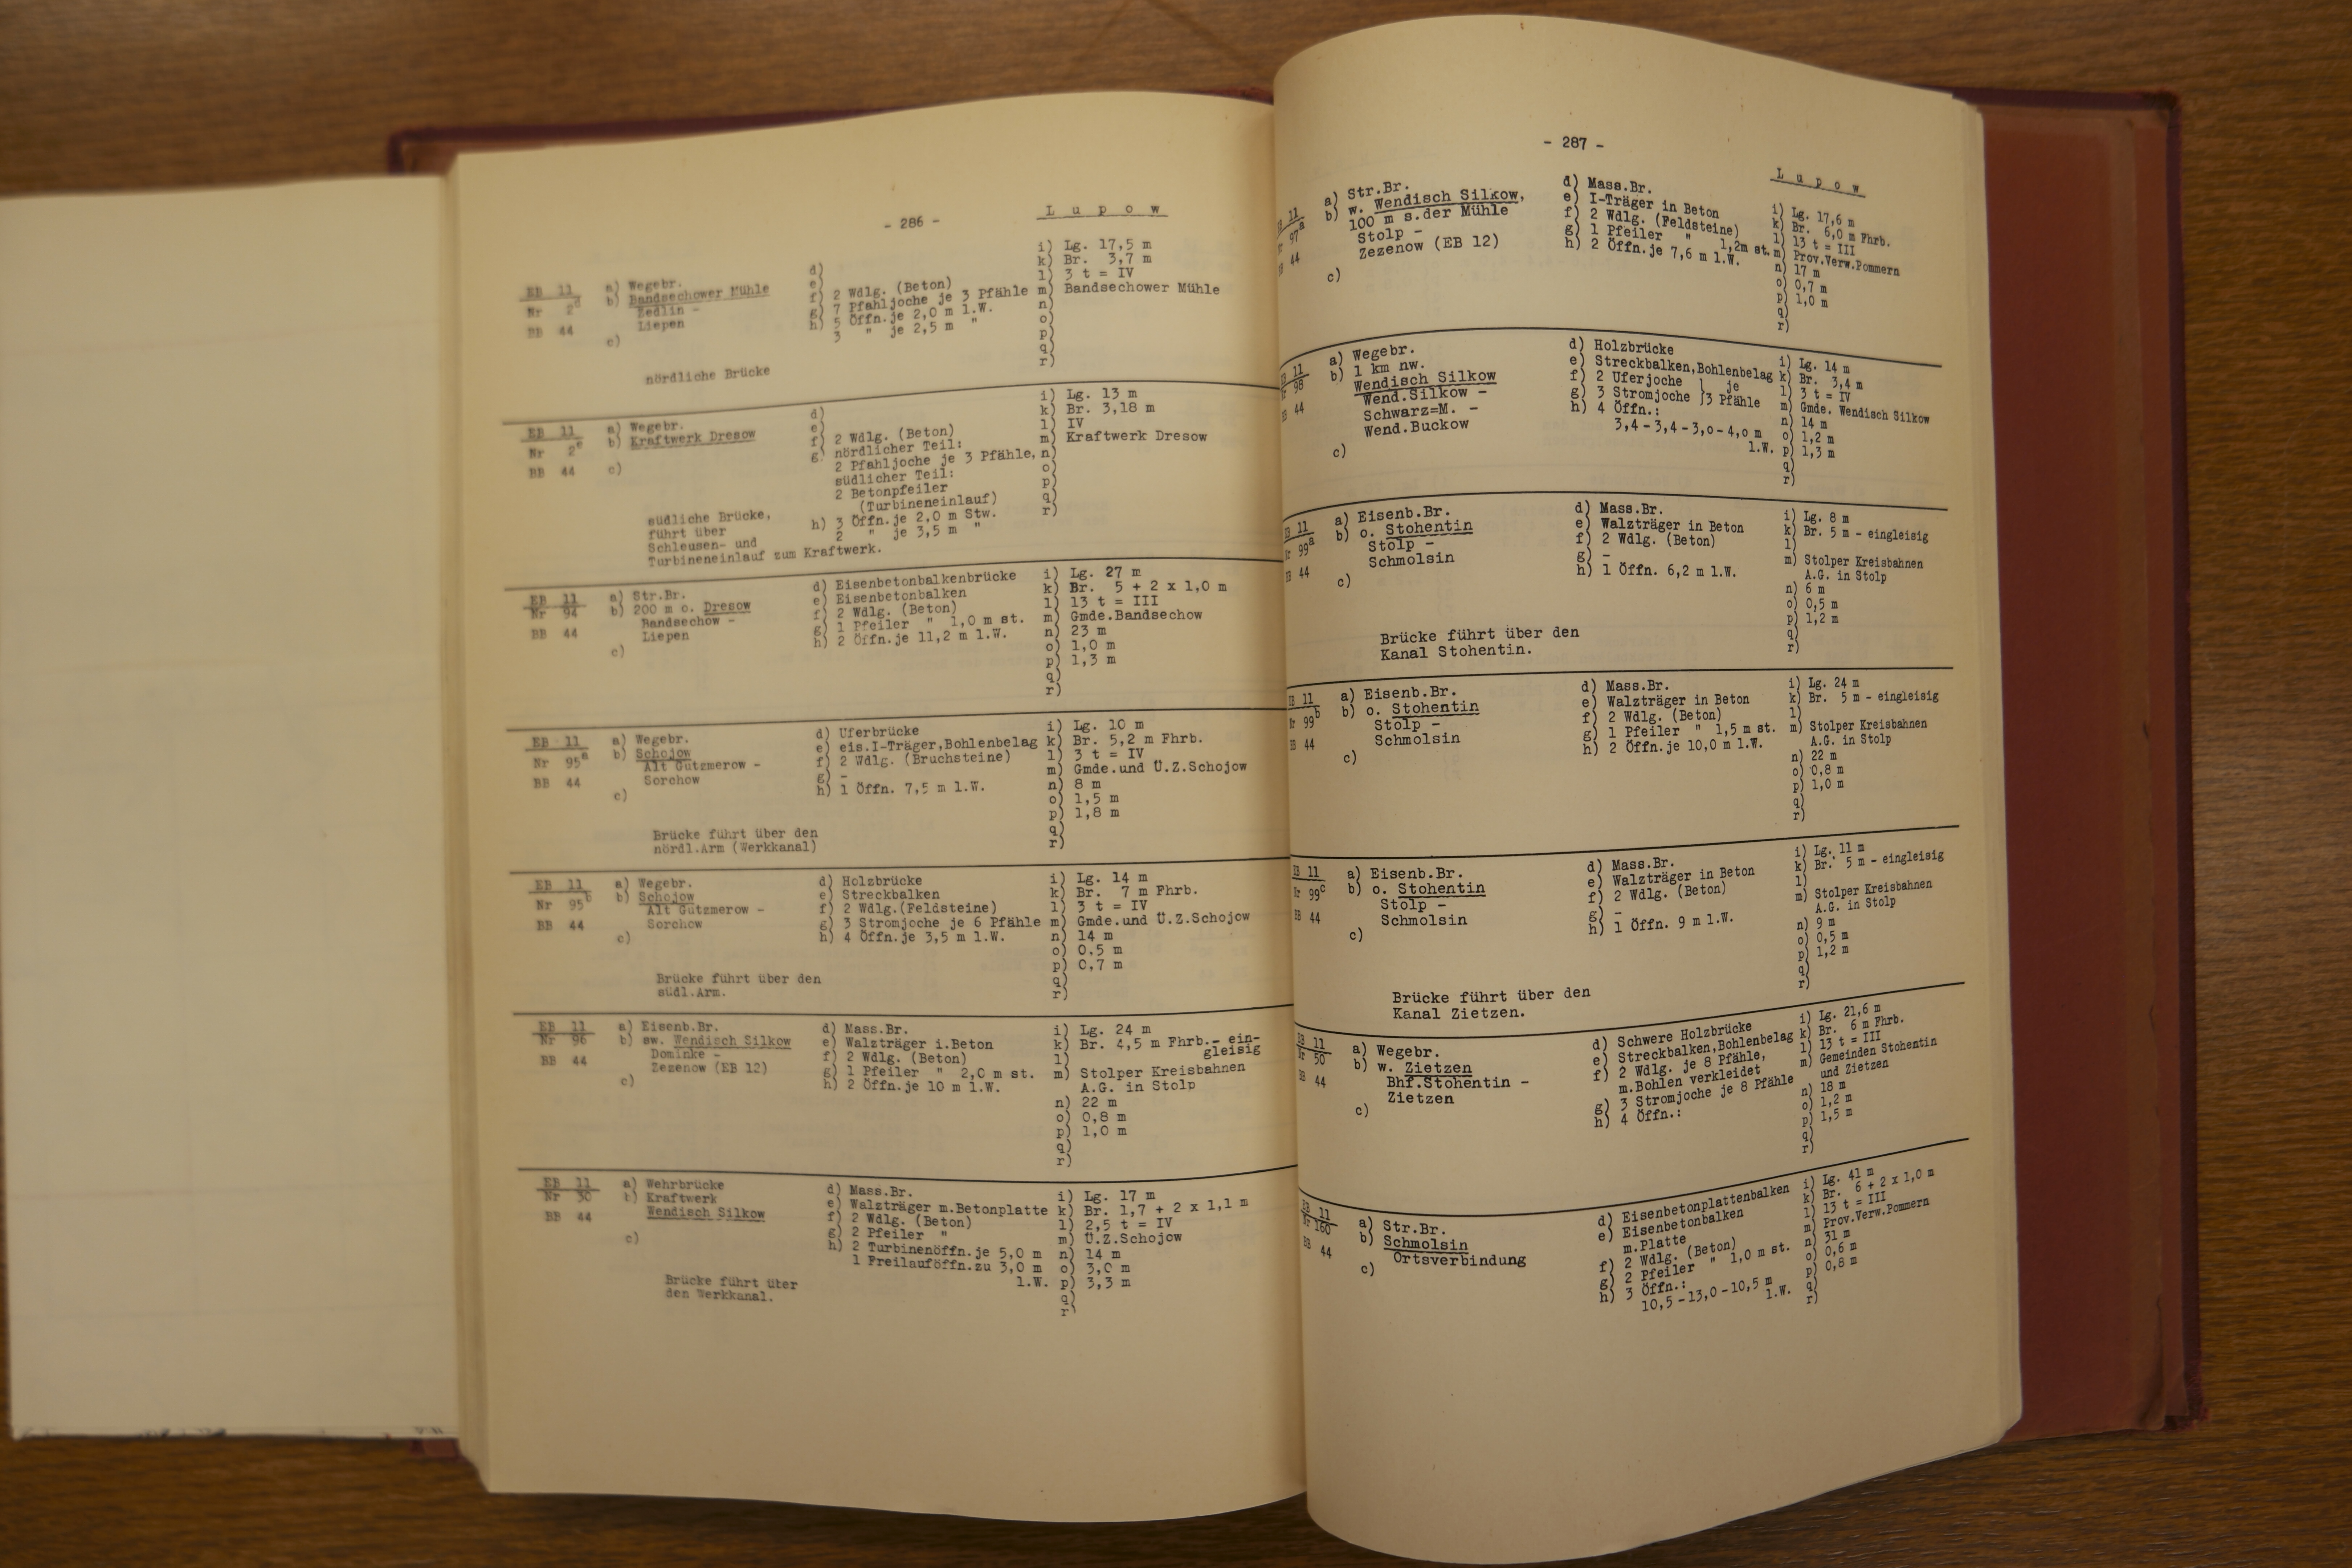 - 286 -
L u p o w
EB 11
Nr 2d
BB 44
a) Wegebr.
b) Bandsechower Mühle
Zedlin -
Liepen
c)
nördliche Brücke
d)
e)
f) 2 Wdlg. (Beton)
g) 7 Pfahljoche je 3 Pfähle
h) 5 Öffn.je 2,0 m l.W.
3 " je 2,5 m "
i) Lg. 17,5 m
k) Br. 3,7 m
l) 3 t = IV
m) Bandsechower Mühle
n)
o)
p)
q)
r)
EB 11
Nr 2e
BB 44
a) Wegebr.
b) Kraftwerk Dresow
c)
südliche Brücke,
führt über
Schleusen- und
Turbineneinlauf zum Kraftwerk.
d)
e)
f) 2 Wdlg. (Beton)
g) nördlicher Teil:
2 Pfahljoche je 3 Pfähle,
südlicher Teil:
2 Betonpfeiler
(Turbineneinlauf)
h) 3 Öffn.je 2,0 m Stw.
2 " je 3,5 m "
i) Lg. 13 m
k) Br. 3,18 m
l) IV
m) Kraftwerk Dresow
n)
o)
p)
q)
r)
EB 11
Nr 94
BB 44
a) Str.Br.
b) 200 m o. Dresow
Bandsechow -
Liepen
c)
d) Eisenbetonbalkenbrücke
e) Eisenbetonbalken
f) 2 Wdlg. (Beton)
g) 1 Pfeiler " 1,0 m st.
h) 2 Öffn.je 11,2 m l.W.
i) Lg. 27 m
k) Br. 5 + 2 x 1,0 m
l) 13 t = III
m) Gmde.Bandsechow
n) 23 m
o) 1,0 m
p) 1,3 m
q)
r)
EB 11
Nr 95a
BB 44
a) Wegebr.
b) Schojow
Alt Gutzmerow -
Sorchow
c)
Brücke führt über den
nördl.Arm (Werkkanal)
d) Uferbrücke
e) eis.I-Träger,Bohlenbelag
f) 2 Wdlg. (Bruchsteine)
g) -
h) 1 Öffn. 7,5 m l.W.
i) Lg. 10 m
k) Br. 5,2 m Fhrb.
l) 3 t = IV
m) Gmde.und Ü.Z.Schojow
n) 8 m
o) 1,5 m
p) 1,8 m
q)
r)
EB 11
Nr 95b
BB 44
a) Wegebr.
b) Schojow
Alt Gutzmerow -
Sorchow
c)
Brücke führt über den
südl.Arm.
d) Holzbrücke
e) Streckbalken
f) 2 Wdlg.(Feldsteine)
g) 3 Stromjoche je 6 Pfähle
h) 4 Öffn.je 3,5 m l.W.
i) Lg. 14 m
k) Br. 7 m Fhrb.
l) 3 t = IV
m) Gmde.und Ü.Z.Schojow
n) 14 m
o) 0,5 m
p) 0,7 m
q)
r)
EB 11
Nr 96
BB 44
a) Eisenb.Br.
b) sw. Wendisch Silkow
Dominke -
Zezenow (EB 12)
c)
d) Mass.Br.
e) Walzträger i.Beton
f) 2 Wdlg. (Beton)
g) 1 Pfeiler " 2,0 m st.
h) 2 Öffn.je 10 m l.W.
i) Lg. 24 m
k) Br. 4,5 m Fhrb.- ein-
gleisig
l)
m) Stolper Kreisbahnen
A.G. in Stolp
n) 22 m
o) 0,8 m
p) 1,0 m
q)
r)
EB 11
Nr 30
BB 44
a) Wehrbrücke
b) Kraftwerk
Wendisch Silkow
c)
Brücke führt über
den Werkkanal.
d) Mass.Br.
e) Walzträger m.Betonplatte
f) 2 Wdlg. (Beton)
g) 2 Pfeiler "
h) 2 Turbinenöffn.je 5,0 m
1 Freilauföffn.zu 3,0 m
l.W.
i) Lg. 17 m
k) Br. 1,7 + 2 x 1,1 m
l) 2,5 t = IV
m) Ü.Z.Schojow
n) 14 m
o) 3,0 m
p) 3,3 m
q)
r)
- 287 -
L u p o w
EB 11
Nr 97a
BB 44
a) Str.Br.
b) w. Wendisch Silkow,
100 m s.der Mühle
Stolp -
Zezenow (EB 12)
c)
d) Mass.Br.
e) I-Träger in Beton
f) 2 Wdlg. (Feldsteine)
g) 1 Pfeiler " 1,2m st.
h) 2 Öffn.je 7,6 m l.W.
i) Lg. 17,6 m
k) Br. 6,0 m Fhrb.
l) 13 t = III
m) Prov.Verw.Pommern
n) 17 m
o) 0,7 m
p) 1,0 m
q)
r)
EB 11
Nr 98
BB 44
a) Wegebr.
b) 1 km nw.
Wendisch Silkow
Wend.Silkow -
Schwarz=M. -
Wend.Buckow
c)
d) Holzbrücke
e) Streckbalken,Bohlenbelag
f) 2 Uferjoche ) je
g) 3 Stromjoche )3 Pfähle
h) 4 Öffn.:
3,4-3,4-3,0-4,0 m
l.W.
i) Lg. 14 m
k) Br. 3,4 m
l) 3 t = IV
m) Gmde. Wendisch Silkow
n) 14 m
o) 1,2 m
p) 1,3 m
q)
r)
EB 11
Nr 99a
BB 44
a) Eisenb.Br.
b) o. Stohentin
Stolp -
Schmolsin
c)
Brücke führt über den
Kanal Stohentin.
d) Mass.Br.
e) Walzträger in Beton
f) 2 Wdlg. (Beton)
g) -
h) 1 Öffn. 6,2 m l.W.
i) Lg. 8 m
k) Br. 5 m - eingleisig
l)
m) Stolper Kreisbahnen
A.G. in Stolp
n) 6 m
o) 0,5 m
p) 1,2 m
q)
r)
EB 11
Nr 99b
BB 44
a) Eisenb.Br.
b) o. Stohentin
Stolp -
Schmolsin
c)
d) Mass.Br.
e) Walzträger in Beton
f) 2 Wdlg. (Beton)
g) 1 Pfeiler " 1,5 m st.
h) 2 Öffn.je 10,0 m l.W.
i) Lg. 24 m
k) Br. 5 m - eingleisig
l)
m) Stolper Kreisbahnen
A.G. in Stolp
n) 22 m
o) 0,8 m
p) 1,0 m
q)
r)
EB 11
Nr 99c
BB 44
a) Eisenb.Br.
b) o. Stohentin
Stolp -
Schmolsin
c)
Brücke führt über den
Kanal Zietzen.
d) Mass.Br.
e) Walzträger in Beton
f) 2 Wdlg. (Beton)
g) -
h) 1 Öffn. 9 m l.W.
i) Lg. 11 m
k) Br. 5 m - eingleisig
l)
m) Stolper Kreisbahnen
A.G. in Stolp
n) 9 m
o) 0,5 m
p) 1,2 m
q)
r)
EB 11
Nr 50
BB 44
a) Wegebr.
b) w. Zietzen
Bhf.Stohentin -
Zietzen
c)
d) Schwere Holzbrücke
e) Streckbalken,Bohlenbelag
f) 2 Wdlg. je 8 Pfähle,
m.Bohlen verkleidet
g) 3 Stromjoche je 8 Pfähle
h) 4 Öffn.:
i) Lg. 21,6 m
k) Br. 6 m Fhrb.
l) 13 t = III
m) Gemeinden Stohentin
und Zietzen
n) 18 m
o) 1,2 m
p) 1,5 m
q)
r)
EB 11
Nr 160
BB 44
a) Str.Br.
b) Schmolsin
Ortsverbindung
c)
d) Eisenbetonplattenbalken
e) Eisenbetonbalken
m.Platte
f) 2 Wdlg. (Beton)
g) 2 Pfeiler " 1,0 m st.
h) 3 Öffn.:
10,5-13,0-10,5 m
l.W.
i) Lg. 41 m
k) Br. 6 + 2 x 1,0 m
l) 13 t = III
m) Prov.Verw.Pommern
n) 31 m
o) 0,6 m
p) 0,8 m
q)
r)